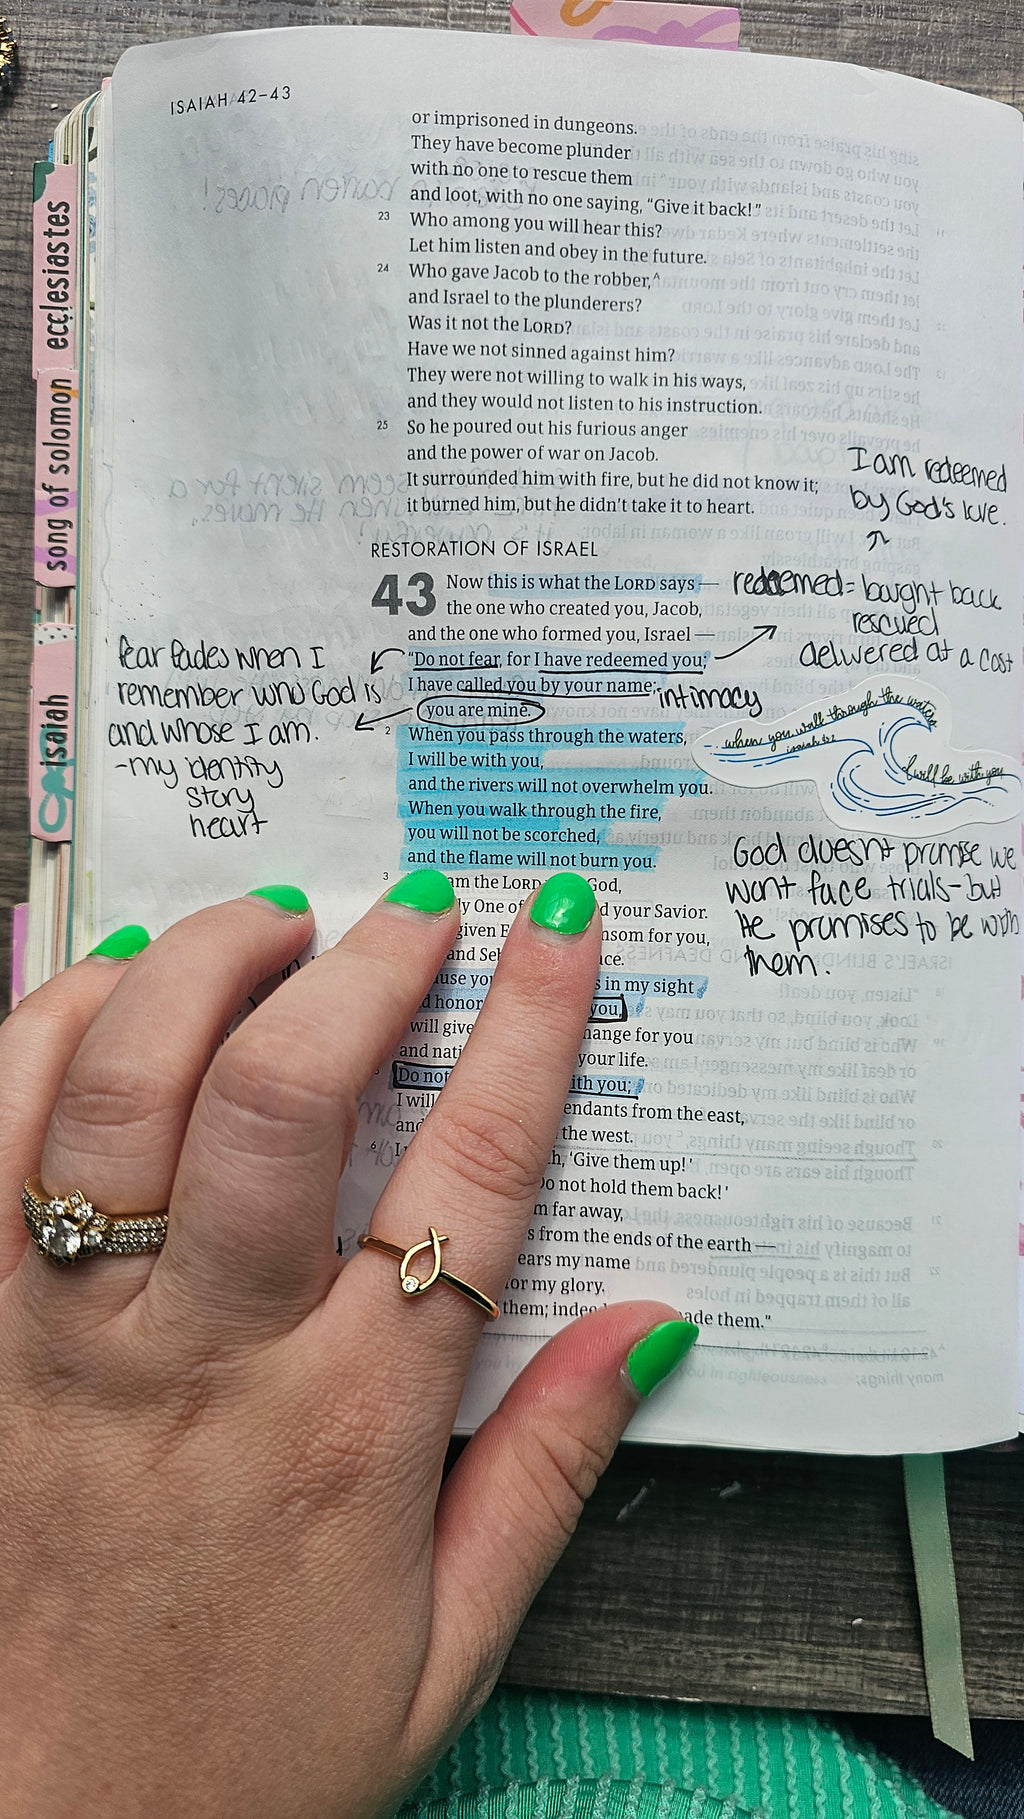 ISAIAH 42–43
or imprisoned in dungeons.
They have become plunder
with no one to rescue them
and loot, with no one saying, “Give it back!”
23 Who among you will hear this?
Let him listen and obey in the future.
24 Who gave Jacob to the robber,A
and Israel to the plunderers?
Was it not the LORD?
Have we not sinned against him?
They were not willing to walk in his ways,
and they would not listen to his instruction.
25 So he poured out his furious anger
and the power of war on Jacob.
It surrounded him with fire, but he did not know it;
it burned him, but he didn’t take it to heart.
RESTORATION OF ISRAEL
43 Now this is what the LORD says —
the one who created you, Jacob,
and the one who formed you, Israel —
“Do not fear, for I have redeemed you;
I have called you by your name;
you are mine.
2 When you pass through the waters,
I will be with you,
and the rivers will not overwhelm you.
When you walk through the fire,
you will not be scorched,
and the flame will not burn you.
3 am the LORD God,
One of your Savior.
given ransom for you,
and
in my sight
honor you,
will give change for you
and your life.
Do not with you;
I will descendants from the east,
and the west.
6 ‘Give them up!’
‘Do not hold them back!’
far away,
from the ends of the earth —
bears my name
for my glory.
them; indeed made them.”
I am redeemed
by God's love.
redeemed = bought back
rescued
delivered at a cost
intimacy
fear fades when I
remember who God is
and whose I am.
-my identity
story
heart
when you walk through the waters
isaiah 43:2
I will be with you
God doesn't promise we
wont face trials - but
He promises to be with
them.
ecclesiastes
song of solomon
isaiah